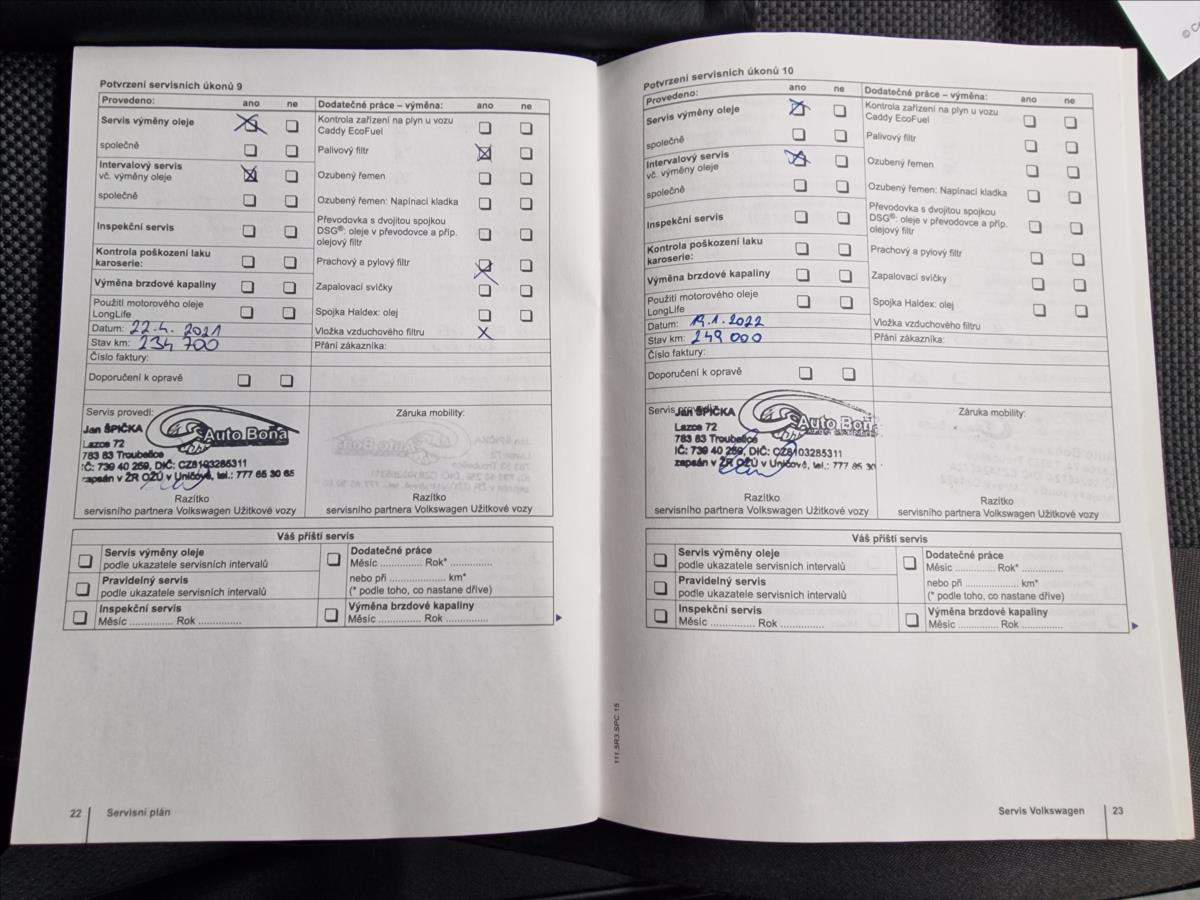 © C
Potvrzení servisních úkonů 9
Provedeno: ano ne Dodatečné práce – výměna: ano ne
Servis výměny oleje Kontrola zařízení na plyn u vozu
Caddy EcoFuel
společně Palivový filtr
Intervalový servis
vč. výměny oleje Ozubený řemen
společně Ozubený řemen: Napínací kladka
Inspekční servis Převodovka s dvojitou spojkou
DSG®: oleje v převodovce a příp.
olejový filtr
Kontrola poškození laku
karoserie: Prachový a pylový filtr
Výměna brzdové kapaliny Zapalovací svíčky
Použití motorového oleje
LongLife Spojka Haldex: olej
Datum: 22.4. 2021 Vložka vzduchového filtru
Stav km: 234 700 Přání zákazníka:
Číslo faktury:
Doporučení k opravě
Servis provedl: Záruka mobility:
Auto Boňa
Jan ŠPIČKA
Lazce 72
783 83 Troubelice
IČ: 739 40 259, DIČ: CZ8103285311
zapsán v ŽR OŽÚ v Uničově, tel.: 777 65 30 65
Razítko Razítko
servisního partnera Volkswagen Užitkové vozy servisního partnera Volkswagen Užitkové vozy
Váš příští servis
Servis výměny oleje Dodatečné práce
podle ukazatele servisních intervalů Měsíc .............. Rok* ..............
Pravidelný servis nebo při .................... km*
podle ukazatele servisních intervalů (* podle toho, co nastane dříve)
Inspekční servis Výměna brzdové kapaliny
Měsíc .............. Rok .............. Měsíc .............. Rok ..............
22 Servisní plán
Potvrzení servisních úkonů 10
Provedeno: ano ne Dodatečné práce – výměna: ano ne
Servis výměny oleje Kontrola zařízení na plyn u vozu
Caddy EcoFuel
společně Palivový filtr
Intervalový servis
vč. výměny oleje Ozubený řemen
společně Ozubený řemen: Napínací kladka
Inspekční servis Převodovka s dvojitou spojkou
DSG®: oleje v převodovce a příp.
olejový filtr
Kontrola poškození laku
karoserie: Prachový a pylový filtr
Výměna brzdové kapaliny Zapalovací svíčky
Použití motorového oleje
LongLife Spojka Haldex: olej
Datum: 1.2022 Vložka vzduchového filtru
Stav km: 249 000 Přání zákazníka:
Číslo faktury:
Doporučení k opravě
Servis provedl: Záruka mobility:
Auto Boňa
Jan ŠPIČKA
Lazce 72
783 83 Troubelice
IČ: 739 40 259, DIČ: CZ8103285311
zapsán v ŽR OŽÚ v Uničově, tel.: 777 65 30
Razítko Razítko
servisního partnera Volkswagen Užitkové vozy servisního partnera Volkswagen Užitkové vozy
Váš příští servis
Servis výměny oleje Dodatečné práce
podle ukazatele servisních intervalů Měsíc .............. Rok* ..............
Pravidelný servis nebo při .................... km*
podle ukazatele servisních intervalů (* podle toho, co nastane dříve)
Inspekční servis Výměna brzdové kapaliny
Měsíc .............. Rok .............. Měsíc .............. Rok ..............
111.5R3.SPC.15
Servis Volkswagen 23